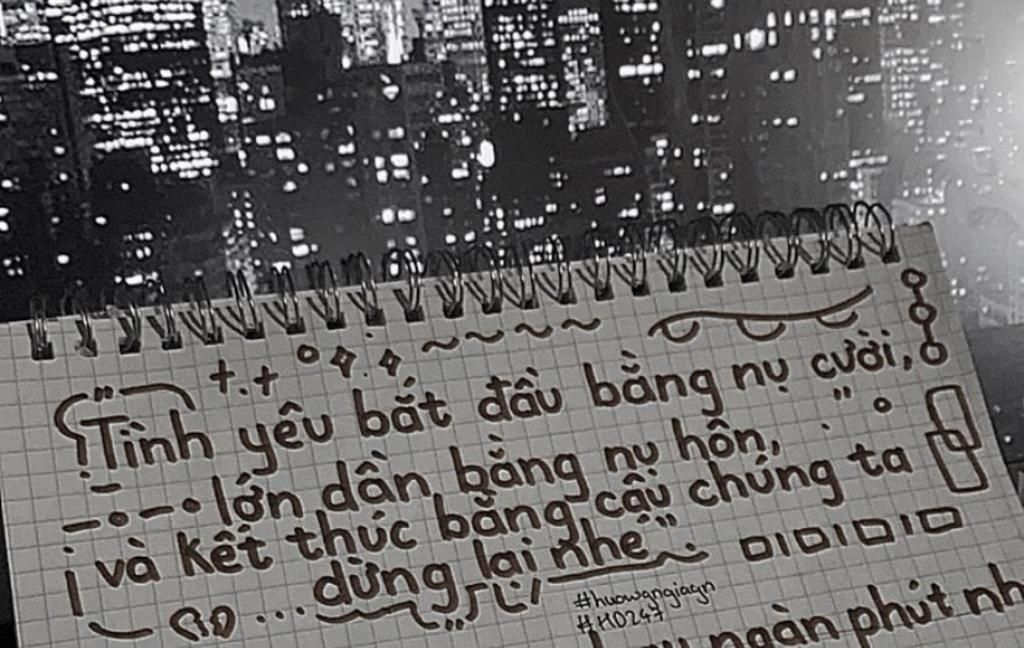 "Tình yêu bắt đầu bằng nụ cười,
lớn dần bằng nụ hôn,
và kết thúc bằng câu chúng ta
dừng lại nhé"
#huowangiagn
#H0247
ngàn phút nh